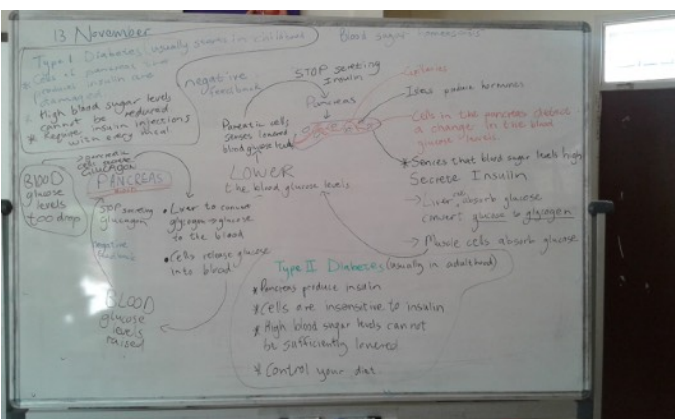 13 November
Blood sugar homeostasis
Type I Diabetes (usually starts in childhood
* Cells of pancreas that
produce insulin are
damaged
* High blood sugar levels
cannot be reduced
* Require insulin injections
with every meal
negative
feedback
STOP secreting
insulin
Pancreas
Pancreatic cells
senses lowered
blood glucose levels
LOWER
the blood glucose levels
Capillaries
Islets produce hormones
Cells in the pancreas
a change in the blood
glucose levels
* Sences that blood sugar levels high
Secrete Insulin
→ Liver cells absorb glucose
convert glucose to glycogen
→ Muscle cells absorb glucose
BLOOD
glucose
levels
too drop
pancreatic
GLUCAGON
PANCREAS
STOP secreting
glucagon
negative
feedback
• Liver to convert
glycogen → glucose
to the blood
• Cells release glucose
into blood
BLOOD
glucose
levels
raised
Type II Diabetes (usually in adulthood)
* Pancreas produce insulin
* Cells are insensitive to insulin
* High blood sugar levels cannot
be sufficiently lowered
* Control your diet